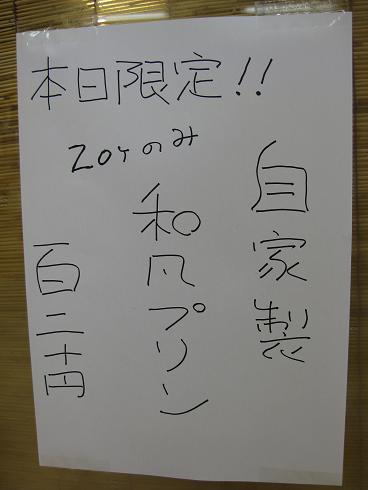 本日限定!!
20ヶのみ
自家製
和風プリン
百二十円